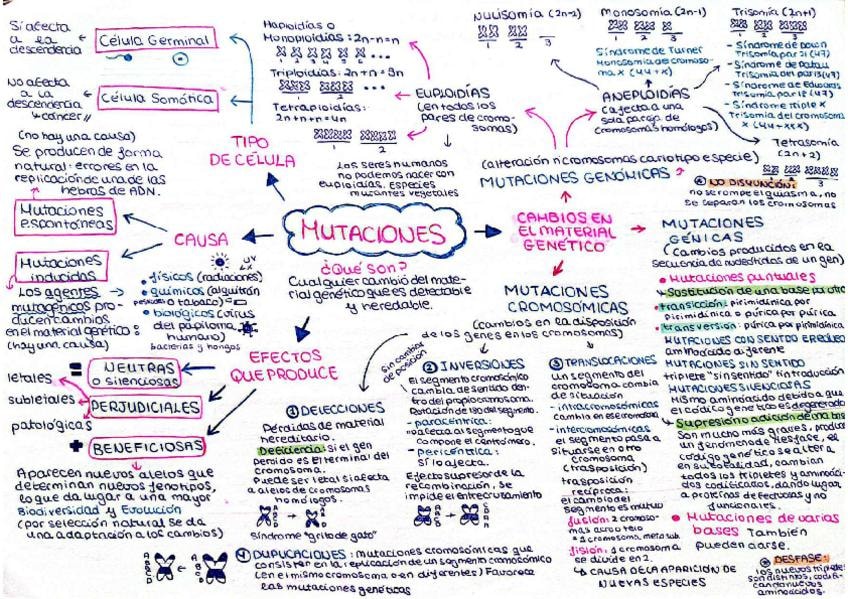 MUTACIONES
¿Qué son?
Cualquier cambio del mate-
rial genético que es detectable
y heredable.
TIPO
DE CÉLULA
Célula Germinal
Sí afecta
a la
descendencia
Célula Somática
No afecta
a la
descendencia
cáncer
CAUSA
Mutaciones
espontáneas
(no hay una causa)
Se producen de forma
natural: errores en la
replicación de una de las
hebras de ADN.
Mutaciones
inducidas
Los agentes
mutagénicos pro-
ducen cambios
en el material genético:
(hay una causa)
físicos (radiaciones)
UV
X
químicos (alquitrán
o tabaco)
biológicos (virus
del papiloma
humano)
bacterias y hongos
EFECTOS
QUE PRODUCE
= NEUTRAS
o silenciosas
- PERJUDICIALES
letales
subletales
patológicas
+ BENEFICIOSAS
Aparecen nuevos alelos que
determinan nuevos fenotipos,
lo que da lugar a una mayor
Biodiversidad y Evolución
(por selección natural se da
una adaptación a los cambios)
CAMBIOS EN
EL MATERIAL
GENÉTICO
(alteración nº cromosomas cariotipo especie)
MUTACIONES GENÓMICAS
EUPLOIDÍAS
(en todos los
pares de cromo-
somas)
Haploidías o
Monoploidías: 2n-n=n
1 2 3 4 5
Triploidías: 2n+n=3n
1 2 3
Tetraploidías:
2n+n+n=4n
1 2
Los seres humanos
no podemos nacer con
euploidías. Especies
mutantes vegetales
ANEUPLOIDÍAS
(afecta a una
sola pareja de
cromosomas homólogos)
Nulisomía (2n-2)
1 2 3
Monosomía (2n-1)
1 2 3
Síndrome de Turner
Monosomía del cromoso-
ma X (44+X)
Trisomía (2n+1)
1 2 3
- Síndrome de Down
Trisomía par 21 (47)
- Síndrome de Patau
Trisomía del par 13 (47)
- Síndrome de Edwards
Trisomía par 18 (47)
- Síndrome triple X
Trisomía del cromosoma
X (44+XXX)
Tetrasomía
(2n+2)
1 2 3
NO DISYUNCIÓN:
no se rompe el quiasma, no
se separan los cromosomas
MUTACIONES
GÉNICAS
(Cambios producidos en la
secuencia de nucleótidos de un gen)
Mutaciones puntuales
Sustitución de una base por otra
transición: pirimidínica por
pirimidínica o púrica por púrica
transversión: púrica por pirimidínica
MUTACIONES CON SENTIDO ERRÓNEO
aminoácido diferente
MUTACIONES SIN SENTIDO
triplete "sin sentido"
MUTACIONES SILENCIOSAS
Mismo aminoácido debido a que
el código genético es degenerado
Supresión o adición de una base
Son mucho más graves, produce
un fenómeno de desfase, el
código genético se altera
en su totalidad, cambian
todos los tripletes y aminoáci-
dos codificados, dando lugar
a proteínas defectuosas y no
funcionales.
Mutaciones de varias
bases También
pueden darse.
DESFASE:
los nuevos tripletes
son distintos, codifi-
can otros nuevos
aminoácidos.
MUTACIONES
CROMOSÓMICAS
(cambios en la disposición
de los genes en los cromosomas)
sin cambio
de posición
1 DELECCIONES
Pérdidas de material
hereditario.
Deficiencia: si el gen
perdido es el terminal del
cromosoma.
Puede ser letal si afecta
a alelos de cromosomas
homólogos.
Síndrome "grito de gato"
2 INVERSIONES
El segmento cromosómico
cambia de sentido den-
tro del propio cromosoma.
Rotación de 180 del segmento.
- paracéntrica:
no afecta al segmento que
compone el centrómero.
- pericéntrica:
Sí lo afecta.
Efecto supresor de la
recombinación, se
impide el entrecruzamiento
3 TRANSLOCACIONES
un segmento del
cromosoma cambia
de situación
- intracromosómicas
cambia en ese cromosoma
- intercromosómicas
el segmento pasa a
situarse en otro
cromosoma
(trasposición)
trasposición
recíproca:
el cambio del
segmento es mutuo
fusión: 2 cromoso-
mas acrocéntricos
fisión: 1 cromosoma
se divide en 2.
CAUSA DE LA APARICIÓN DE
NUEVAS ESPECIES
4 DUPLICACIONES: mutaciones cromosómicas que
consisten en la replicación de un segmento cromosómico
(en el mismo cromosoma o en diferentes) Favorece
las mutaciones genéticas